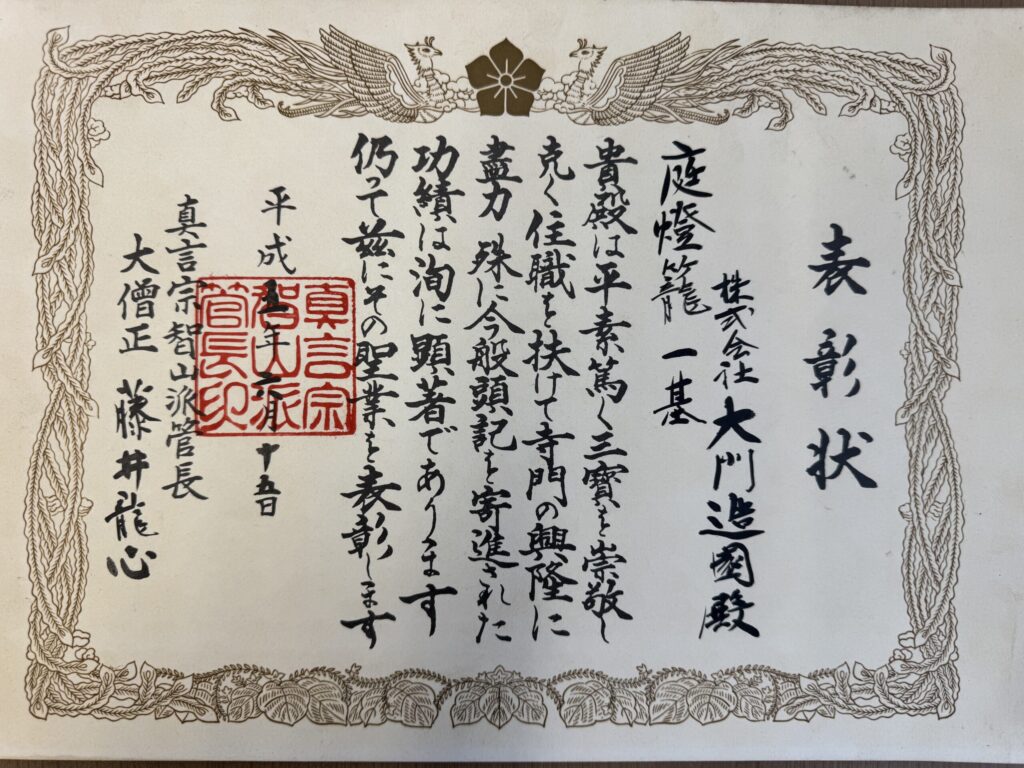 表彰状
株式会社 大門造園殿
庭燈籠 一基
貴殿は平素篤く三寶を崇敬し
克く住職を扶けて寺門の興隆に
盡力 殊に今般頭記を寄進された
功績は洵に顕著であります
仍って茲にその聖業を表彰します
平成五年六月十五日
真言宗智山派管長
大僧正 藤井龍心
真言宗
智山派
管長印